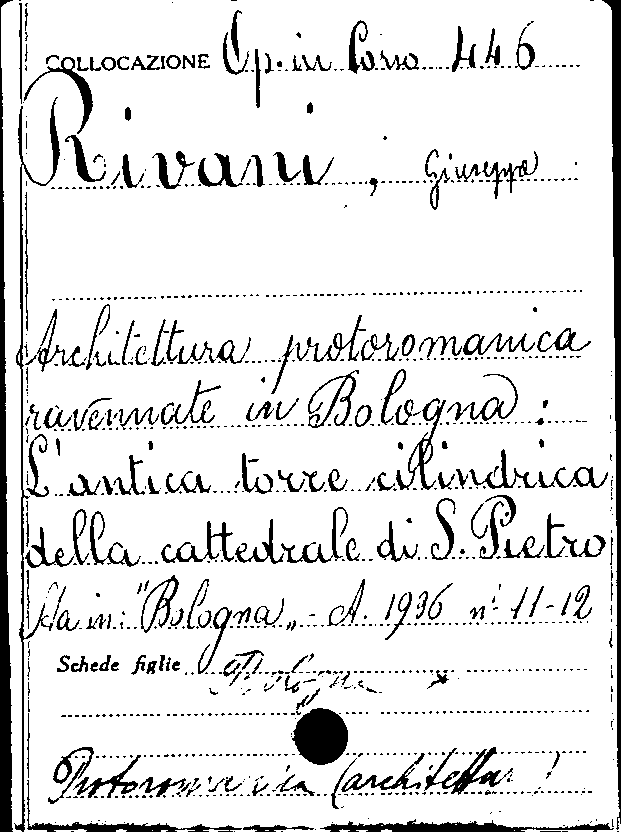 COLLOCAZIONE Op. in Corso 446
Rivani, Giuseppe
Architettura protoromanica
ravennate in Bologna:
L'antica torre cilindrica
della cattedrale di S. Pietro
Sta in: "Bologna„ - A. 1936 n.i 11-12
Schede figlie Bologna
Protoromanica (architettura)